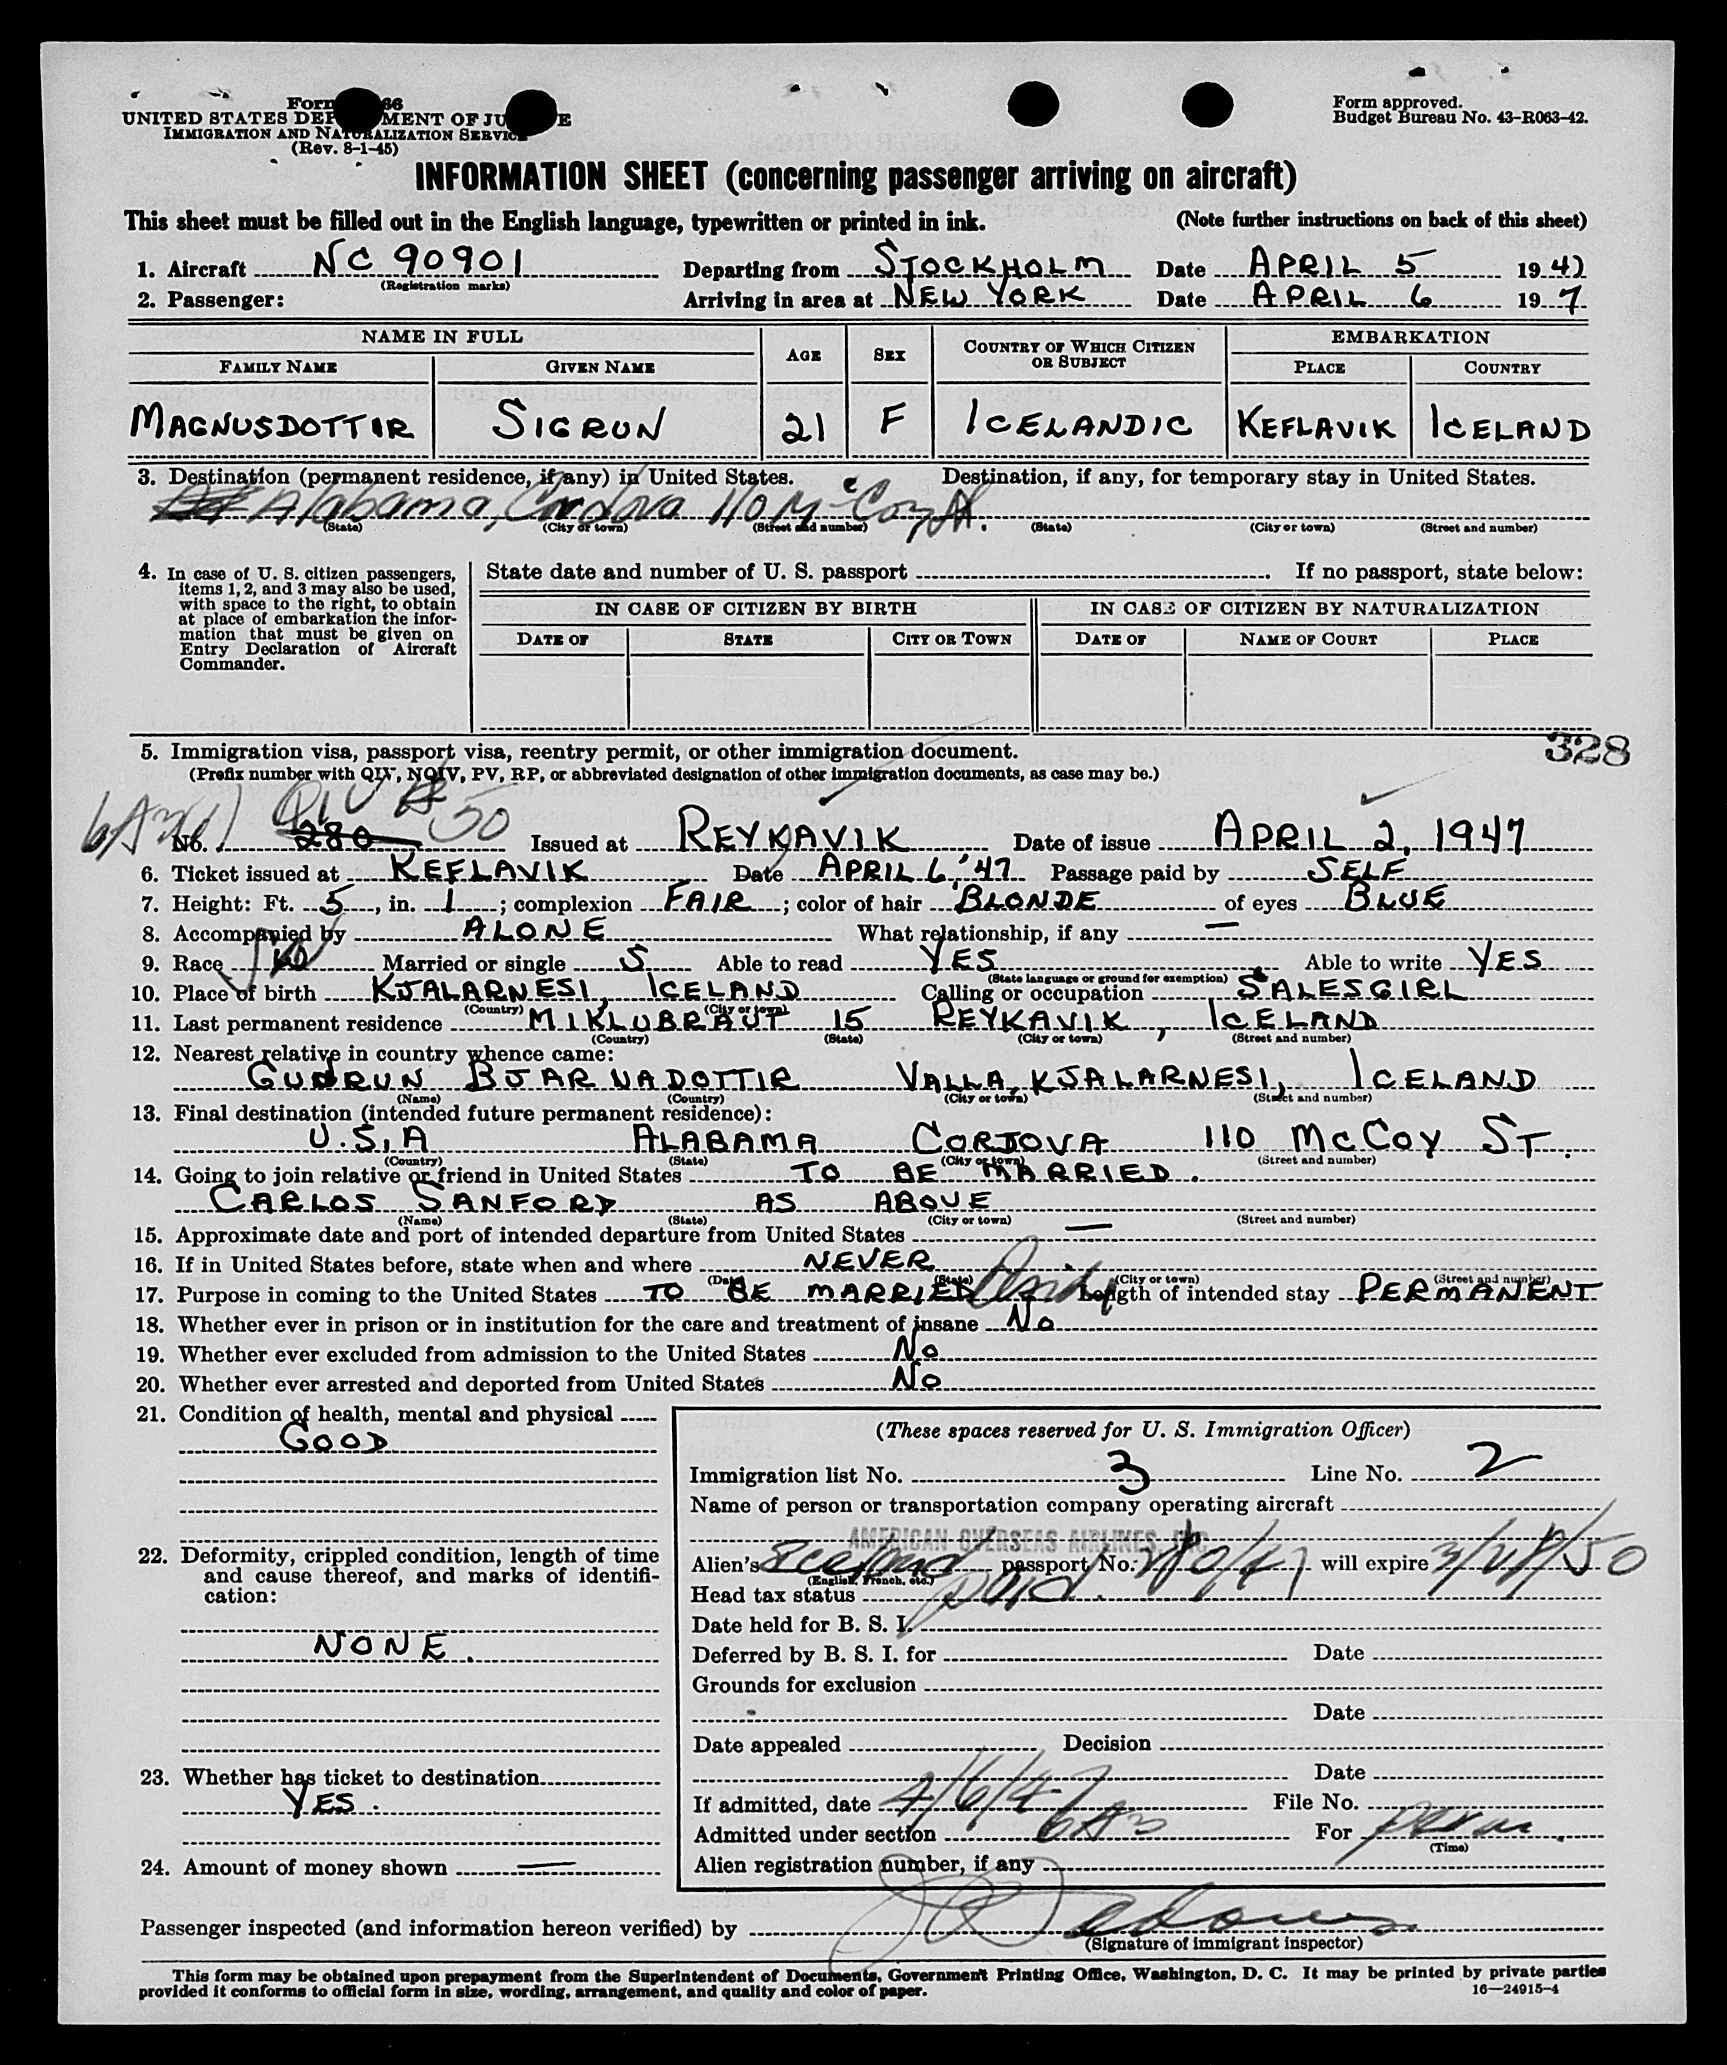 Form 66
UNITED STATES DEP MENT OF JU E
IMMIGRATION AND NATURALIZATION SERVICE
(Rev. 8-1-45)
Form approved.
Budget Bureau No. 43-R063-42.
INFORMATION SHEET (concerning passenger arriving on aircraft)
This sheet must be filled out in the English language, typewritten or printed in ink. (Note further instructions on back of this sheet)
1. Aircraft NC 90901 Departing from STOCKHOLM Date APRIL 5 19 47
(Registration marks)
2. Passenger: Arriving in area at NEW YORK Date APRIL 6 19 7
NAME IN FULL AGE SEX COUNTRY OF WHICH CITIZEN OR SUBJECT EMBARKATION
FAMILY NAME GIVEN NAME PLACE COUNTRY
MAGNUSDOTTIR SIGRUN 21 F ICELANDIC KEFLAVIK ICELAND
3. Destination (permanent residence, if any) in United States. Destination, if any, for temporary stay in United States.
Alabama, Cordova 110 McCoy St.
(State) (City or town) (Street and number) (State) (City or town) (Street and number)
4. In case of U. S. citizen passengers, items 1, 2, and 3 may also be used, with space to the right, to obtain at place of embarkation the information that must be given on Entry Declaration of Aircraft Commander.
State date and number of U. S. passport . If no passport, state below:
IN CASE OF CITIZEN BY BIRTH IN CASE OF CITIZEN BY NATURALIZATION
DATE OF STATE CITY OR TOWN DATE OF NAME OF COURT PLACE
5. Immigration visa, passport visa, reentry permit, or other immigration document. 328
(Prefix number with QIV, NQIV, PV, RP, or abbreviated designation of other immigration documents, as case may be.)
QIV # 50
No. 280 Issued at REYKAVIK Date of issue APRIL 2, 1947
6. Ticket issued at KEFLAVIK Date APRIL 6, '47 Passage paid by SELF
7. Height: Ft. 5, in. 1; complexion FAIR; color of hair BLONDE of eyes BLUE
8. Accompanied by ALONE What relationship, if any —
9. Race Married or single S Able to read YES Able to write YES
(State language or ground for exemption)
10. Place of birth KJALARNESI, ICELAND Calling or occupation SALESGIRL
(Country) (City or town)
11. Last permanent residence MIKLUBRAUT 15 REYKAVIK, ICELAND
(Country) (State) (City or town) (Street and number)
12. Nearest relative in country whence came:
GUDRUN BJARNADOTTIR VALLA, KJALARNESI, ICELAND
(Name) (Country) (City or town) (Street and number)
13. Final destination (intended future permanent residence):
U.S.A ALABAMA CORDOVA 110 McCOY ST.
(Country) (State) (City or town) (Street and number)
14. Going to join relative or friend in United States TO BE MARRIED.
CARLOS SANFORD AS ABOVE
(Name) (State) (City or town) (Street and number)
15. Approximate date and port of intended departure from United States —
16. If in United States before, state when and where NEVER
(Date) (State) (City or town) (Street and number)
17. Purpose in coming to the United States TO BE MARRIED Length of intended stay PERMANENT
18. Whether ever in prison or in institution for the care and treatment of insane No
19. Whether ever excluded from admission to the United States No
20. Whether ever arrested and deported from United States No
21. Condition of health, mental and physical
GOOD
22. Deformity, crippled condition, length of time and cause thereof, and marks of identification:
NONE.
23. Whether has ticket to destination
YES.
24. Amount of money shown —
(These spaces reserved for U. S. Immigration Officer)
Immigration list No. 3 Line No. 2
Name of person or transportation company operating aircraft
AMERICAN OVERSEAS AIRLINES, INC.
Alien's Iceland passport No. will expire 3/28/50
(English, French, etc.)
Head tax status paid.
Date held for B. S. I.
Deferred by B. S. I. for Date
Grounds for exclusion
Date
Date appealed Decision
Date
If admitted, date 4/6/47 File No.
Admitted under section 6A3 For perm.
(Time)
Alien registration number, if any
Passenger inspected (and information hereon verified) by
(Signature of immigrant inspector)
This form may be obtained upon prepayment from the Superintendent of Documents, Government Printing Office, Washington, D. C. It may be printed by private parties
provided it conforms to official form in size, wording, arrangement, and quality and color of paper. 16—24915-4